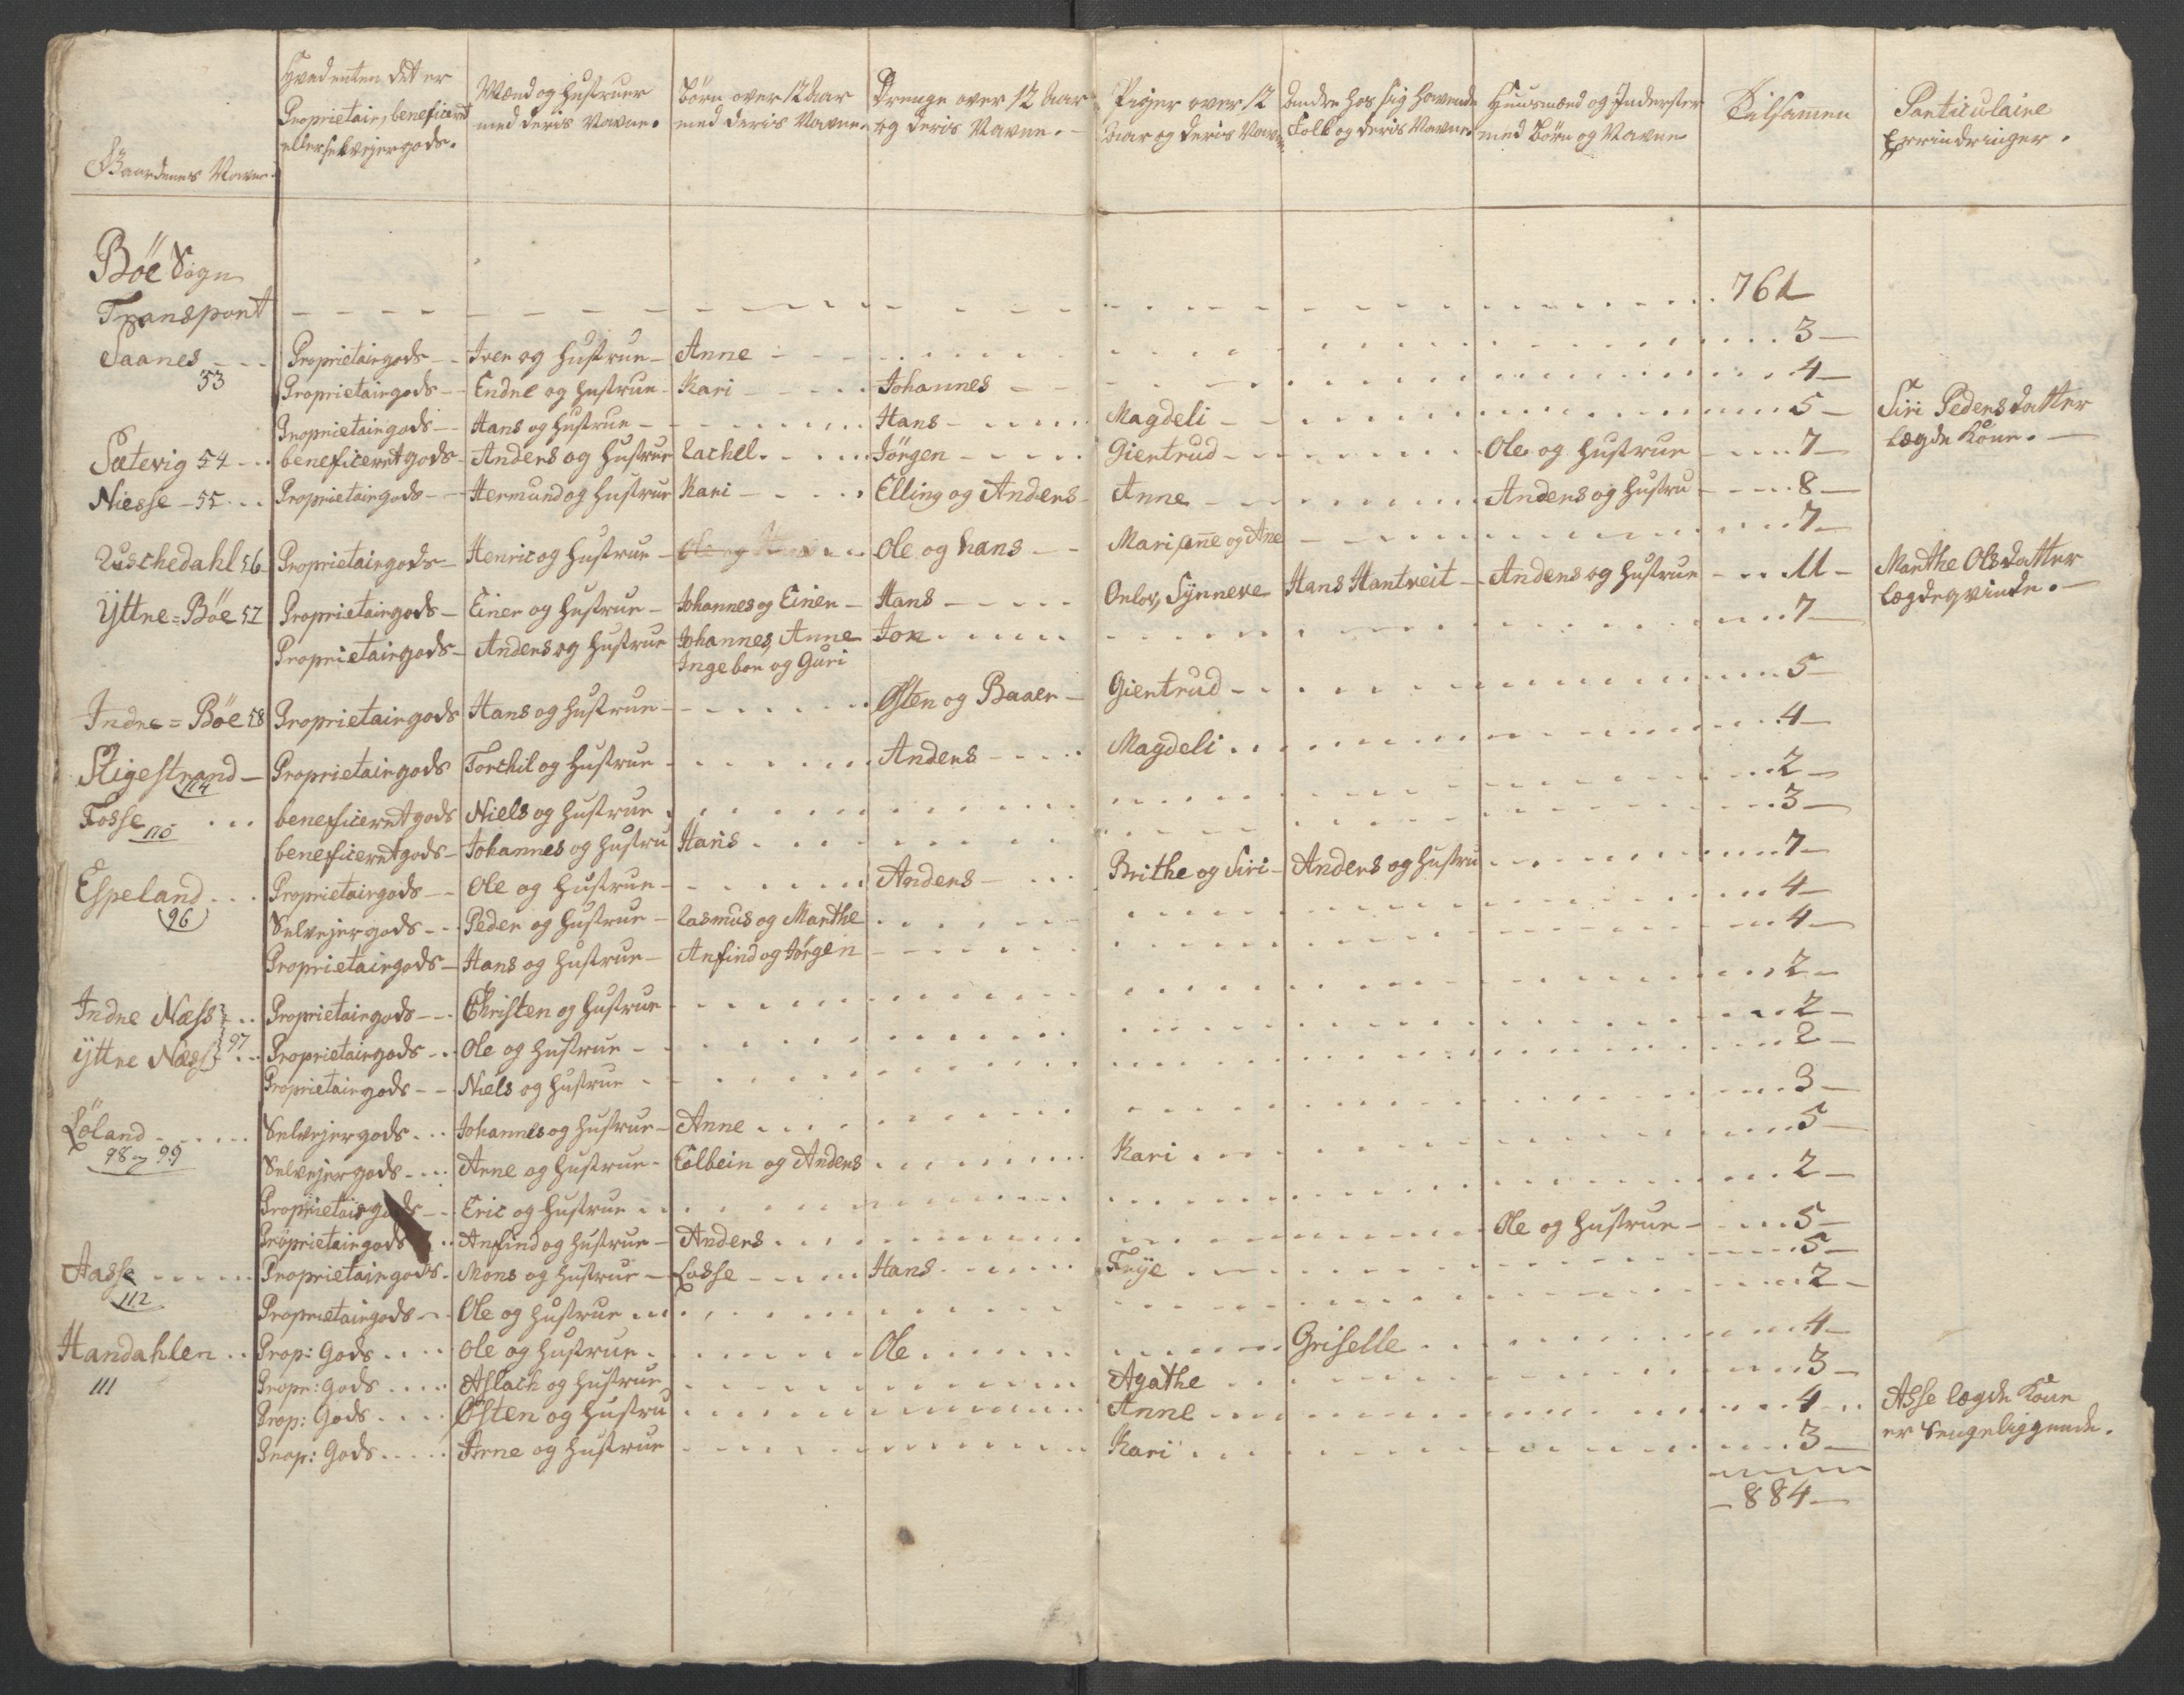 Gaardenes Navne. Hvadenten det er Proprietair, beneficeret eller selvejergods. Mænd og Hustruer med deris Navne. Børn over 12 Aar med deris Navne. Drenge over 12 Aar og deris Navne. Piger over 12 Aar og deris Navne. Andre hos sig havende Folk og deris Navne. Huusmænd og Inderster med Børn og Navne Tilsamen Particulaire Errindringer.
Böe Sogn
Transport 761
Saanes 53 Proprietairgods Iver og Hustrue Anne 3
Proprietairgods Endre og Hustrue Kari Johannes 4
Proprietairgods Hans og Hustrue Hans Magdeli 5 Siri Peders datter
Sætevig 54 beneficeretgods Anders og Hustrue Rachel Jörgen Giertrud Ole og Hustrue 7 lægde Kone.
Niesse 55 Proprietairgods Hermund og Hustrue Kari Elling og Anders Anne Anders og Hustru 8
Ruschedahl 56 Proprietairgods Henric og Hustrue Ole og Hans Mari, Anne og Ane 7
Yttre=Böe 57 Proprietairgods Einer og Hustrue Johannes og Einer Hans Orlov, Synneve Hans Hantveit Anders og Hustrue 11 Marthe Olsdatter lægdeqvinde.
Proprietairgods Anders og Hustrue Johannes, Anne Jon 7
Ingebor og Guri
Indre=Böe 58 Proprietairgods Hans og Hustrue Østen og Baaer Giertrud 5
Stigestrand 114 Proprietairgods Torchil og Hustrue Anders Magdeli 4
Fosse 110 beneficeretgods Niels og Hustrue 2
beneficeretgods Johannes og Hustru Hans 3
Espeland 96 Proprietairgods Ole og Hustrue Anders Brithe og Siri Anders og Hustru 7
Selvejergods Peder og Hustrue Rasmus og Marthe 4
Proprietairgods Hans og Hustrue Anfind og Jörgen 4
Indre Næss Proprietairgods Christen og Hustrue 2
Yttre Næss 97 Proprietairgods Ole og Hustrue 2
Proprietairgods Niels og Hustrue 2
Löland 98 og 99 Selvejergods Johannes og Hustrue Anne 3
Selvejergods Arne og Hustrue Colbein og Anders Kari 5
Proprietairgods Eric og Hustrue 2
Proprietairgods Anfind og Hustrue Anders Ole og Hustrue 5
Aasse 112 Proprietairgods Mons og Hustrue Lasse Hans Frije 5
Proprietairgods Ole og Hustrue 2
Handahlen 111 Prop: Gods Ole og Hustrue Ole Griselle 4
Propr: Gods Aslach og Hustrue Agathe 3
Prop: Gods Østen og Hustru Anne 4 Asse lægde Kone
Prop: Gods Arne og Hustrue Kari 3 er Sengeliggende.
884